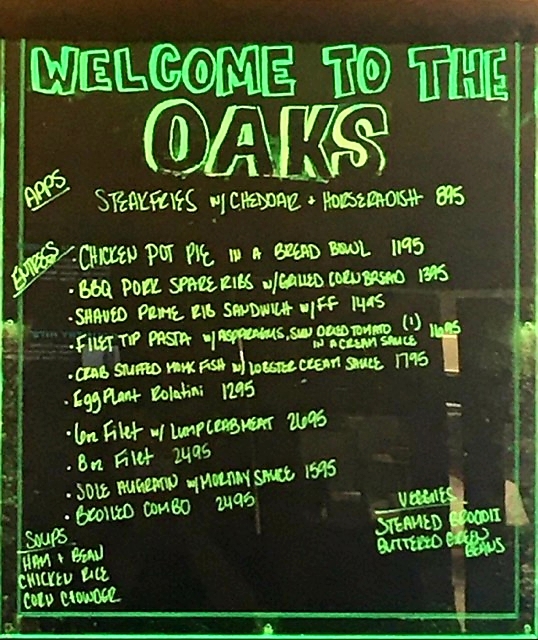 WELCOME TO THE
OAKS
APPS
STEAKFRIES W/ CHEDDAR + HORSERADISH 895
ENTREES
• CHICKEN POT PIE IN A BREAD BOWL 1195
• BBQ PORK SPARE RIBS W/GRILLED CORNBREAD 1395
• SHAVED PRIME RIB SANDWICH W/FF 1495
• FILET TIP PASTA W/ASPARAGUS, SUN DRIED TOMATO (1) 1695
IN A CREAM SAUCE
• CRAB STUFFED MONK FISH W/ LOBSTER CREAM SAUCE 1795
• EggPlant Rolatini 1295
• 6oz Filet W/ LUMPCRABMEAT 2695
• 8oz Filet 2495
• SOLE AUGRATIN W/MORTNY SAUCE 1595
• BROILED COMBO 2495
VEGGIES
STEAMED BROCOII
BUTTERED GREEN
BEANS
SOUPS
HAM + BEAN
CHICKEN RICE
CORN CHOWDER